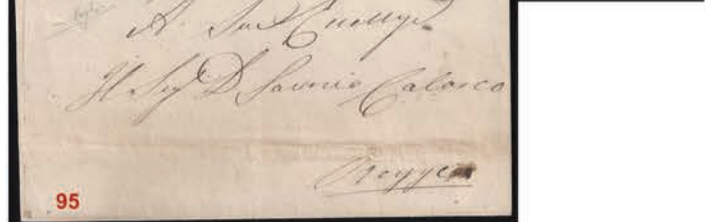 A Sua Eccellza
Il Sig D Saverio Calarco
Reggio
95